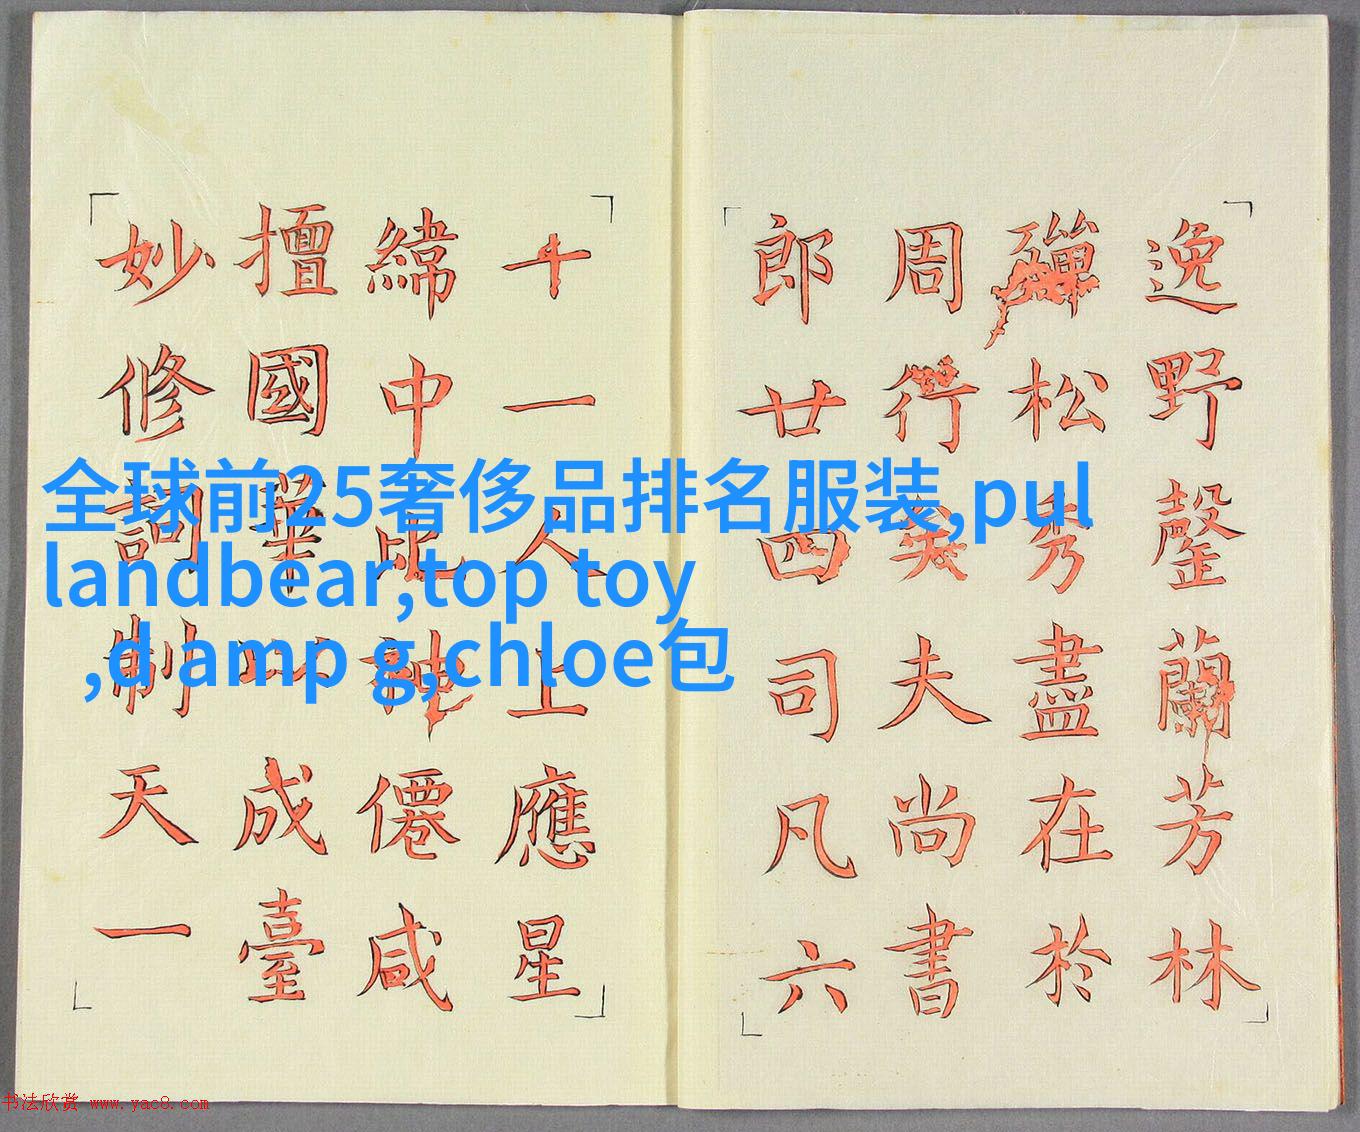 逸野罄蘭芳林
殫松秀盡在於
周行矣夫尚書
郎廿四司凡六
十一人上應星
緯中比神僊咸
擅國華以成臺
妙修詞制天一
全球前25奢侈品排名服装,pul
landbear,top toy
,d amp g,chloe包
书法欣赏 www.yac8.com